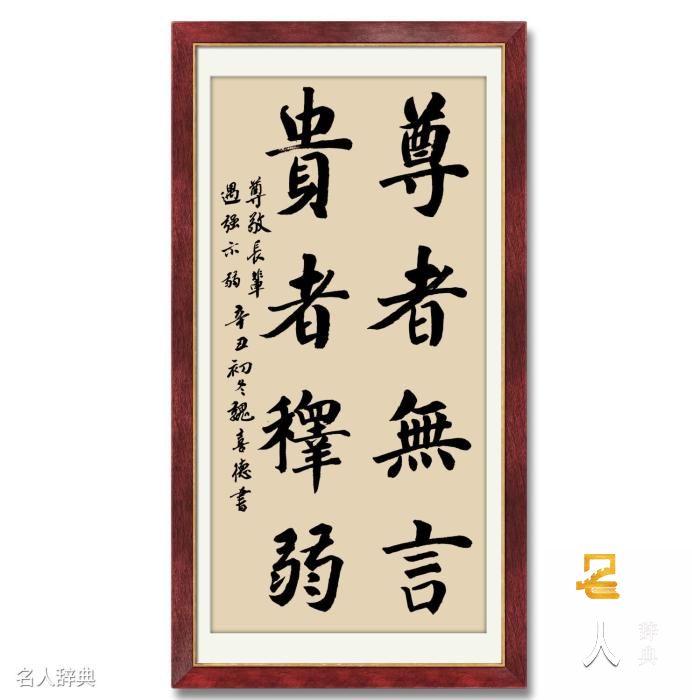 尊者無言
貴者釋弱
尊敬長輩
遇强示弱 辛丑初冬魏喜德書
名人辞典
名人辞典